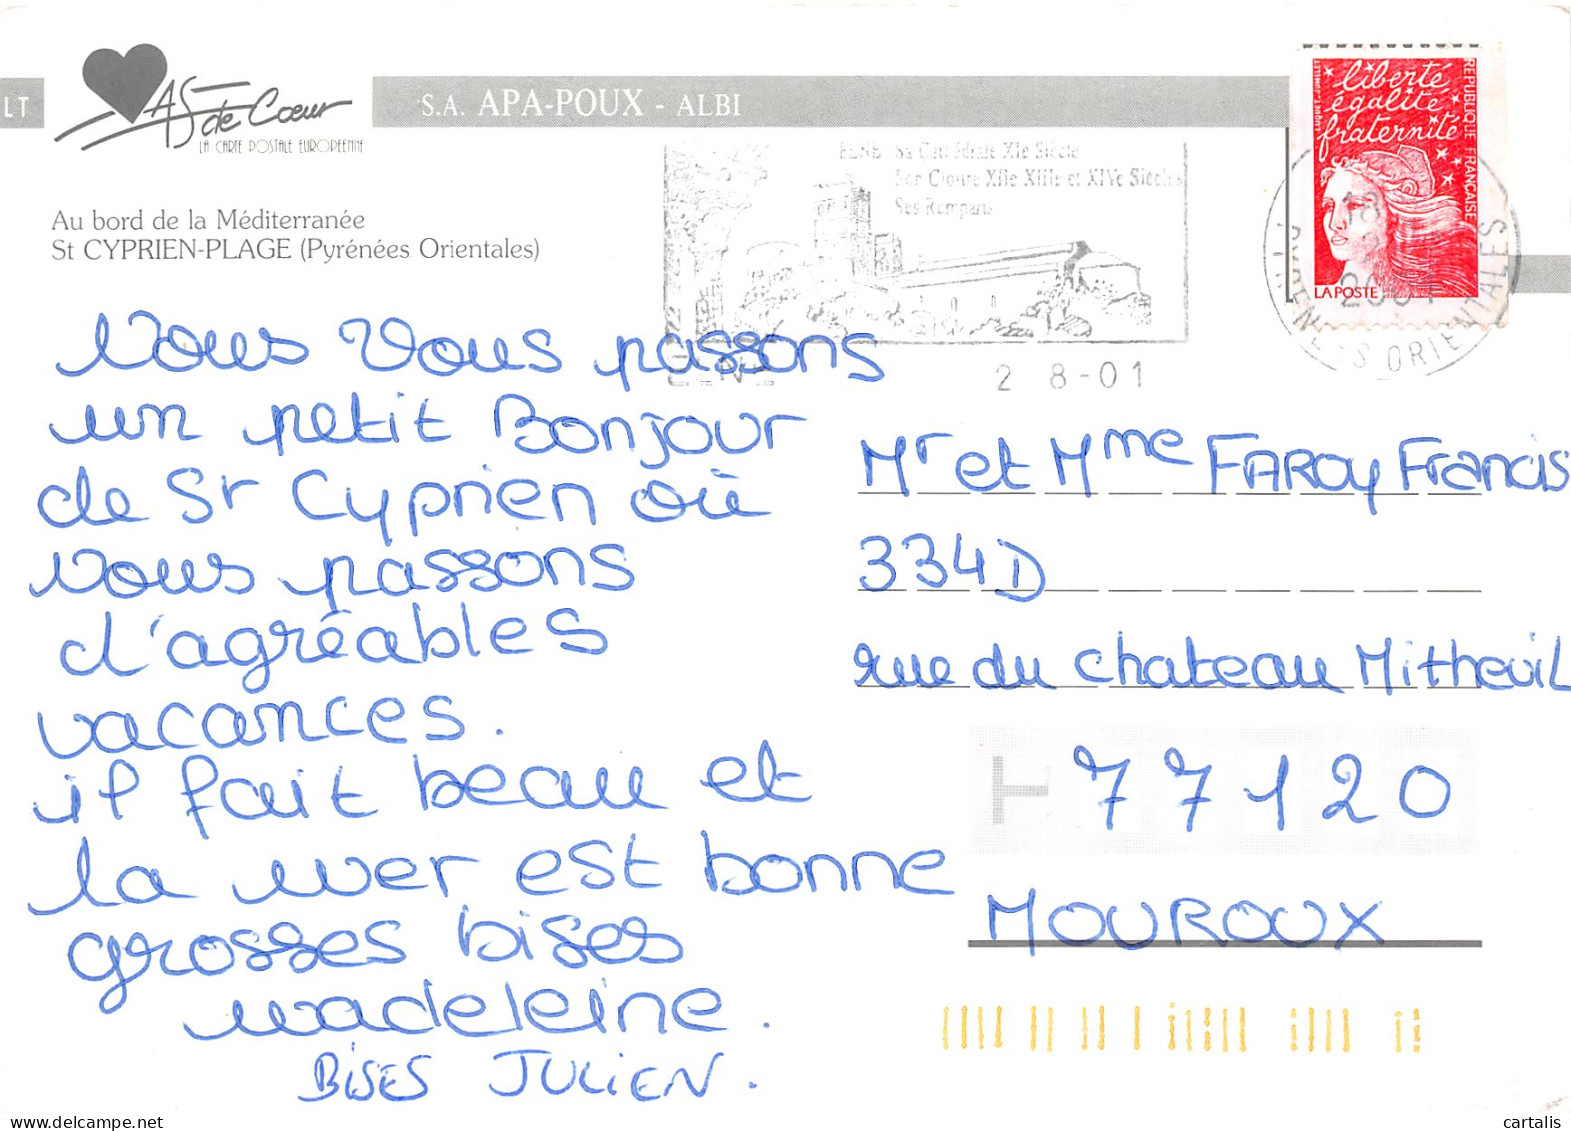 LT
AS de Cœur
LA CARTE POSTALE EUROPEENNE
S.A. APA-POUX - ALBI
Au bord de la Méditerranée
St CYPRIEN-PLAGE (Pyrénées Orientales)
ELNE Sa Cathédrale XIe Siècle
Son Cloître XIIe XIIIe et XIVe Siècles
Ses Remparts
2 8-01
liberté
égalité
fraternité
REPUBLIQUE FRANÇAISE
LA POSTE
PYRENEES ORIENTALES
Nous Vous passons
un petit Bonjour
de St Cyprien où
nous passons
d'agréables
vacances.
il fait beau et
la mer est bonne
grosses bises
madeleine.
BISES JULIEN.
Mr et Mme FAROY Francis
334D
rue du chateau Mitheuil
77120
MOUROUX
cartalis